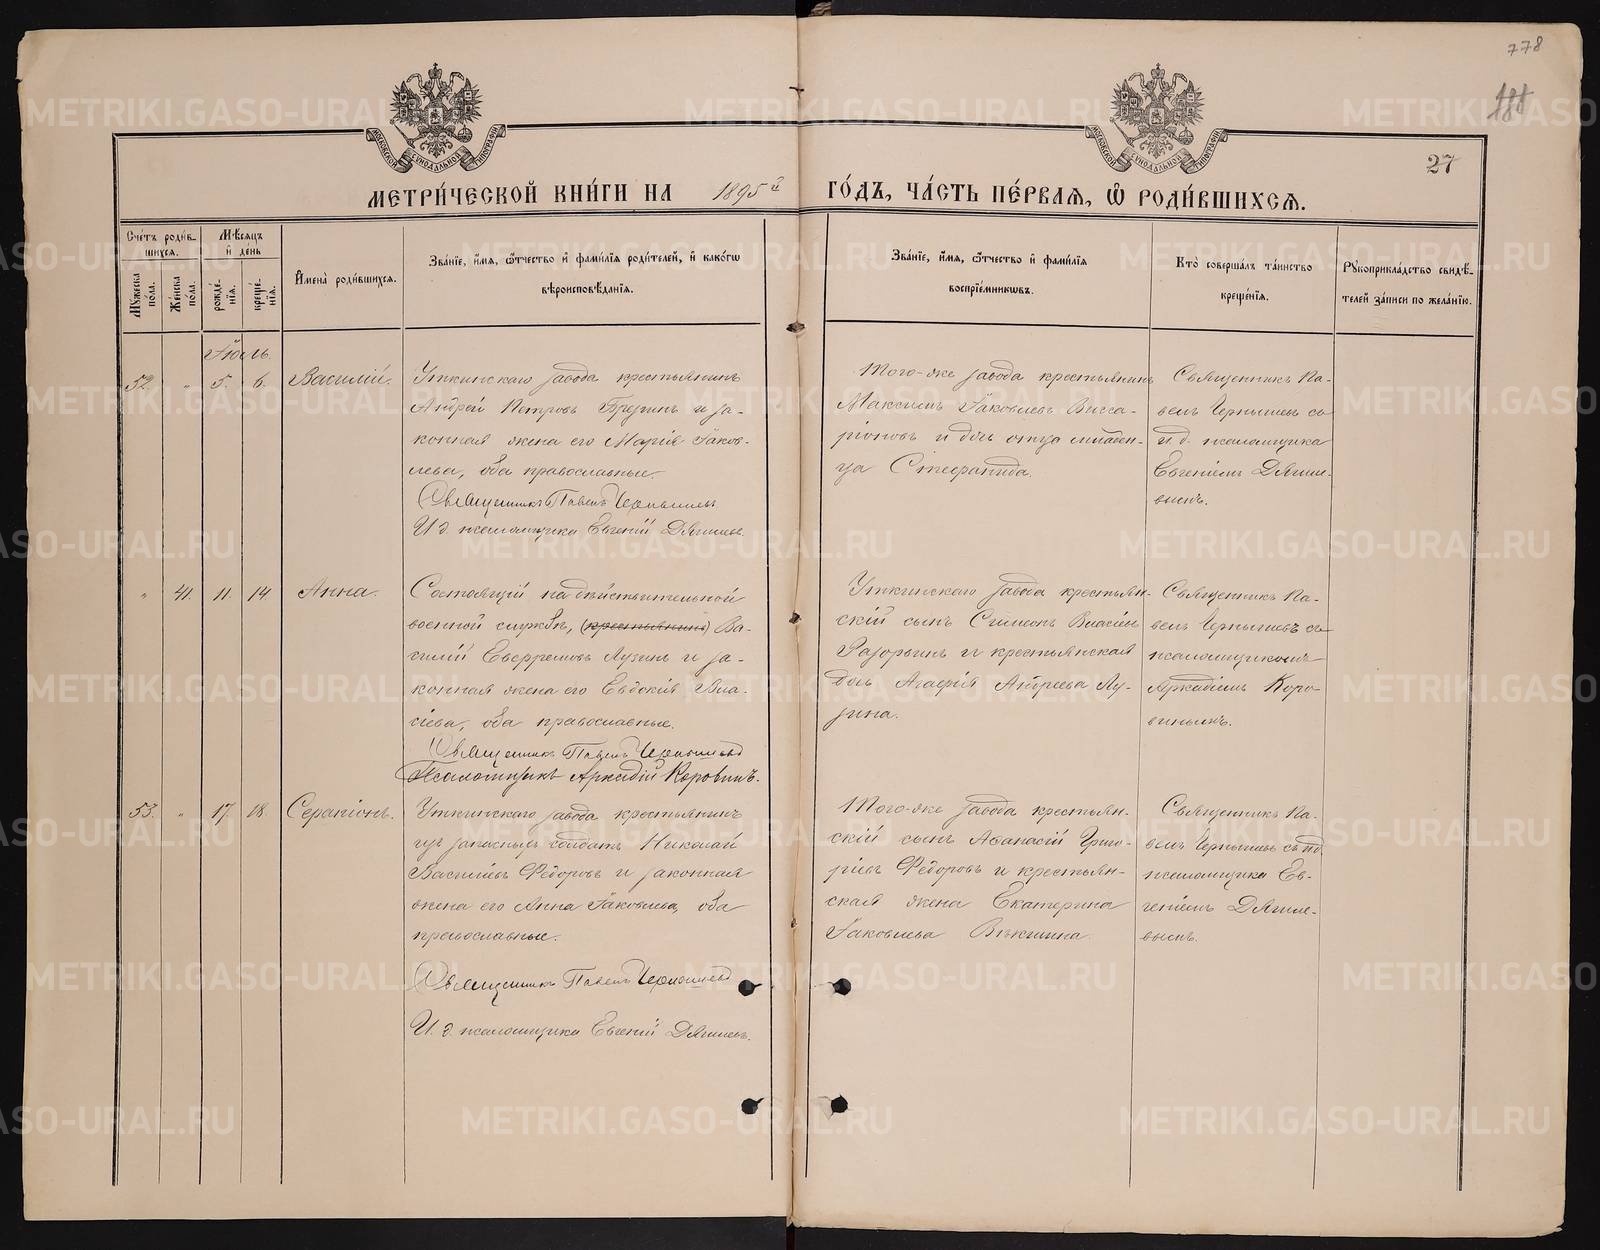 778
27
МОСКОВСКОЙ СѴНОДАЛЬНОЙ ТИПОГРАФІИ
МОСКОВСКОЙ СѴНОДАЛЬНОЙ ТИПОГРАФІИ
МЕТРИ́ЧЕСКОЙ КНИ́ГИ НА 1895й ГО́ДЪ, ЧА́СТЬ ПЕ́РВАЯ, Ѡ РОДИ́ВШИХСЯ.
Сче́тъ роди́в-
шихся.
Мѣ́сяцъ
и де́нь
Му́жеска
по́ла.
Же́нска
по́ла.
рожде́-
нїя.
креще́-
нїя.
Имена̀ роди́вшихся.
Зва́нїе, и́мя, ѻ́тчество и фами́лїя роди́телей, и како́гѡ
вѣроисповѣ́данїя.
Зва́нїе, и́мя, ѻ́тчество и фами́лїя
воспрїе́мникѡвъ.
Кто̀ соверша́лъ та́инство
креще́нїя.
Рꙋкоприкла́дство свидѣ́-
телей за́писи по жела́нїю.
Іюль.
52. " 5. 6. Василій.
Уткинскаго завода крестьянинъ
Андрей Петровъ Брезгинъ и за-
конная жена его Марія Іаков-
лева, оба православные.
Священникъ Павелъ Чернышевъ
И. д. псаломщика Евгеній Дягилев.
Того-же завода крестьянинъ
Максимъ Іаковлевъ Висса-
ріоновъ и дочь отца младен-
ца Стефанида.
Священникъ Па-
велъ Чернышевъ съ
и. д. псаломщика
Евгеніемъ Дягиле-
вымъ.
" 41. 11. 14 Анна.
Состоящій на дѣйствительной
военной службѣ, (крестьянинъ) Ва-
силій Евфремовъ Лузинъ и за-
конная жена его Евдокія Вла-
сіева, оба православные.
Священникъ Павелъ Чернышевъ
Псаломщикъ Аркадій Коровинъ.
Уткинскаго завода крестьян-
скій сынъ Симеонъ Власіевъ
и крестьянская
дочь Агафія Андреева Лу-
зина.
Священникъ Па-
велъ Чернышевъ съ
псаломщикомъ
Аркадіемъ Коро-
винымъ.
53. " 17. 18. Серапіонъ.
Уткинскаго завода крестьянинъ
изъ запасныхъ солдатъ Николай
Василіевъ Ѳедоровъ и законная
жена его Анна Іаковлева, оба
православные.
Священникъ Павелъ Чернышевъ
И. д. псаломщика Евгеній Дягилевъ.
Того-же завода крестьян-
скій сынъ Аѳанасій Григо-
ріевъ Ѳедоровъ и крестьян-
ская жена Екатерина
Іаковлева Вѣкшина.
Священникъ Па-
велъ Чернышевъ съ и д.
псаломщика Ев-
геніемъ Дягиле-
вымъ.
METRIKI.GASO-URAL.RU